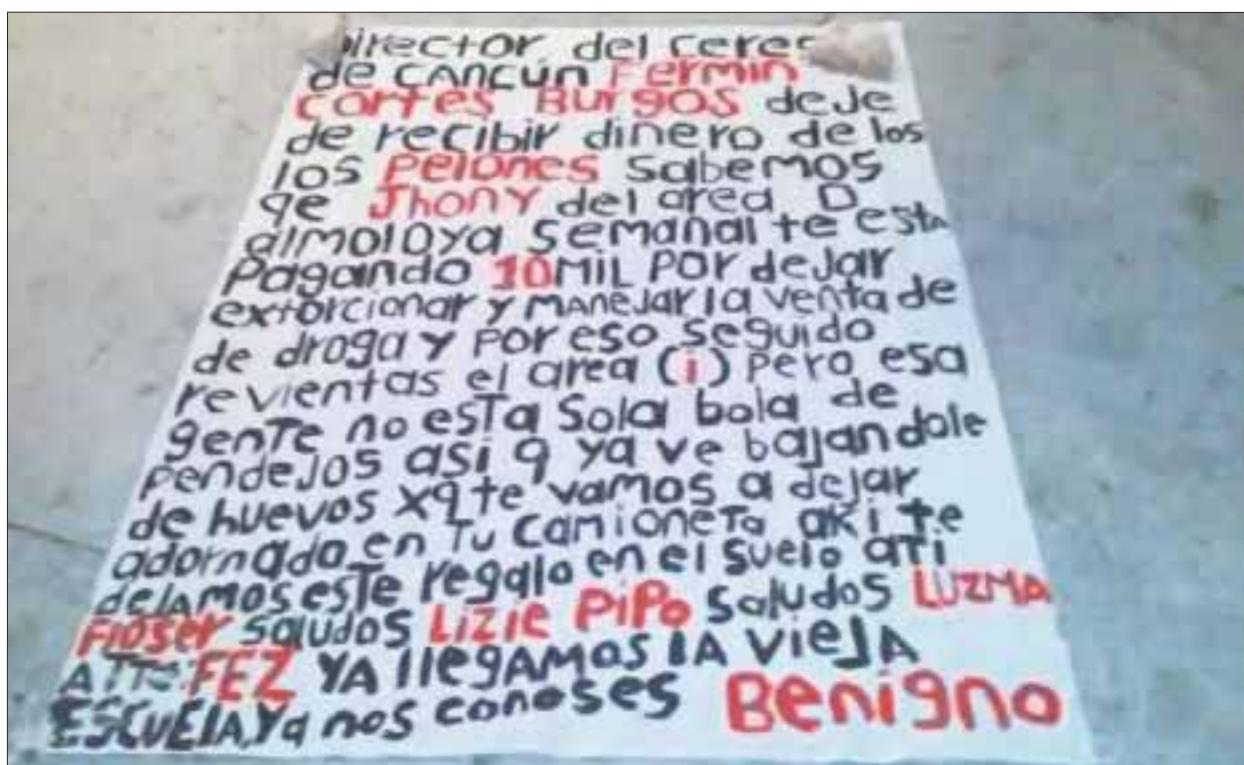 Director del ceres
de CANCÚN Fermin
cortes Burgos deje
de recibir dinero de los
los Pelones sabemos
qe Jhony del area D
almoloya semanal te esta
Pagando 10MIL POR dejar
extorcionar y MANEJAR la venta de
de droga y POR eso seguido
revientas el area (i) Pero esa
gente no esta sola bola de
Pendejos asi q ya ve bajandole
de huevos xq te vamos a dejar
adornado en Tu camioneta aki te
dejamos este regalo en el suelo ati
Fioser saludos Lizie PiPo saludos LUZMA
ATTE: FEZ YA llegamos LA vieja
ESCUELA, Ya nos conoses Benigno